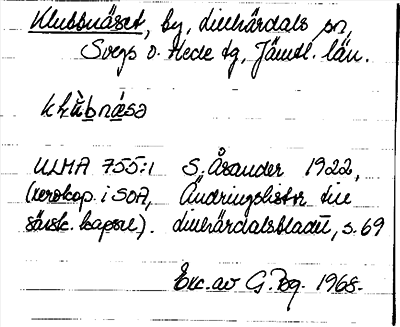 Klubbnäset, by, Lillhärdals sn,
Svegs o. Hede tg, Jämtl. län.
klùbnæsə
ULMA 755:1 S. Åsander 1922,
(xerokop. i SOA, Ändringslista till
särsk. kapsel). Lillhärdalsbladet, s. 69
Exc. av G. Pbg. 1968.